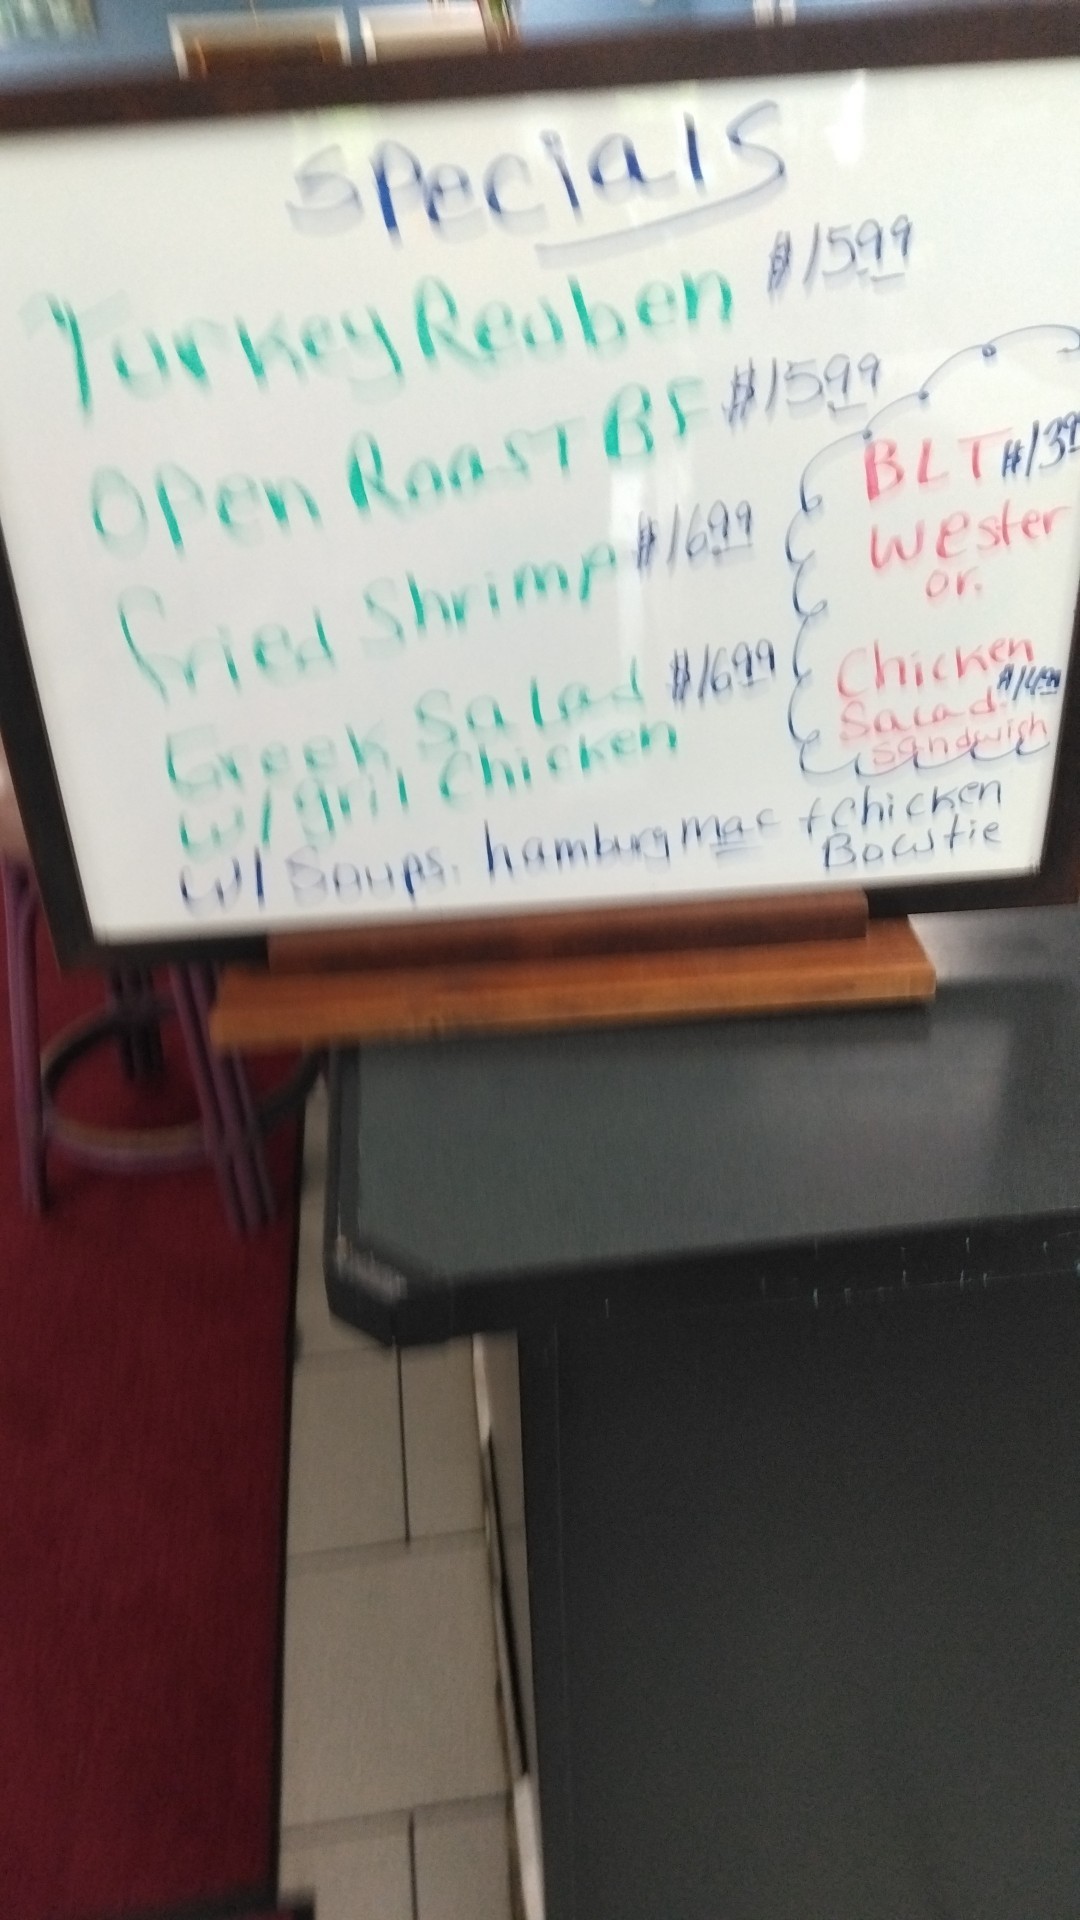 Specials
Turkey Reuben $15.99
Open Roast BF $15.99
Fried Shrimp $16.99
Greek Salad $16.99
w/ gril Chicken
BLT $13.9
Wester
or.
Chicken
Salad. $14.99
Sandwich
w/ Soups. hamburg mac + chicken
Bowtie